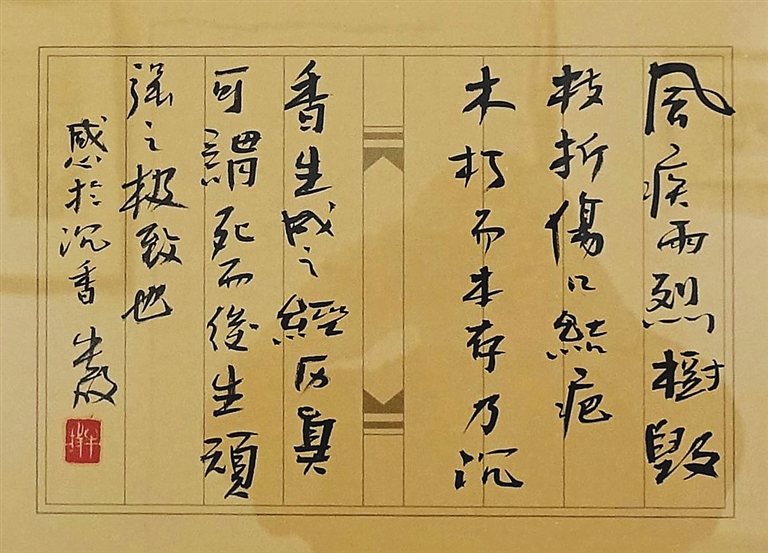 風疾雨烈樹毀
枝折傷口結疤
木朽而本存乃沉
香生成之經历真
可謂死而後生頑
强之极致也
感於沉香